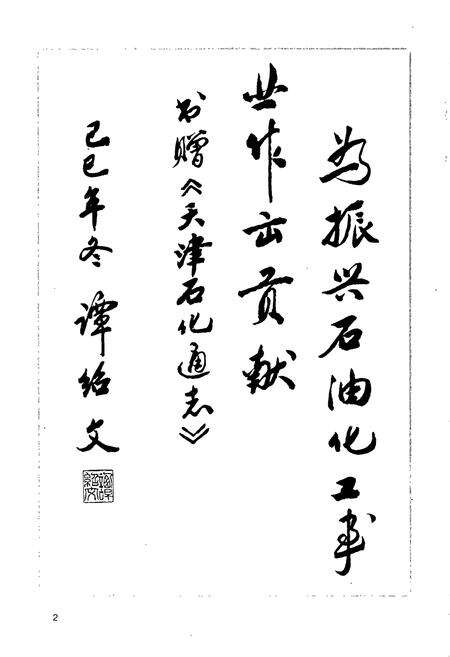 为振兴石油化工事
业作出贡献
书赠《天津石化通志》
己巳年冬 谭绍文
2